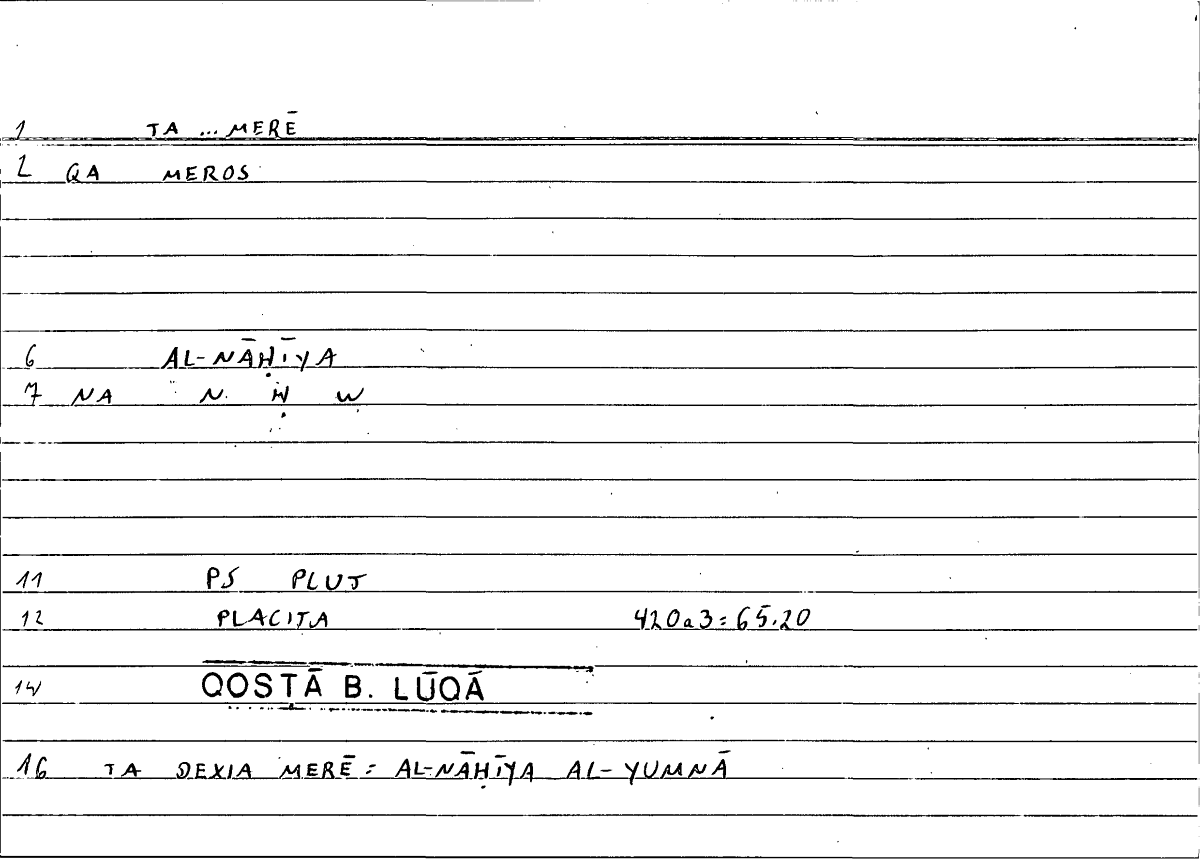 1 TA ... MERĒ
2 QA MEROS
6 AL-NĀḤĪYA
7 NA N Ḥ W
11 PS PLUT
12 PLACITA 420a3=65.20
14 QOSTĀ B. LŪQĀ
16 TA DEXIA MERĒ = AL-NĀḤĪYA AL-YUMNĀ